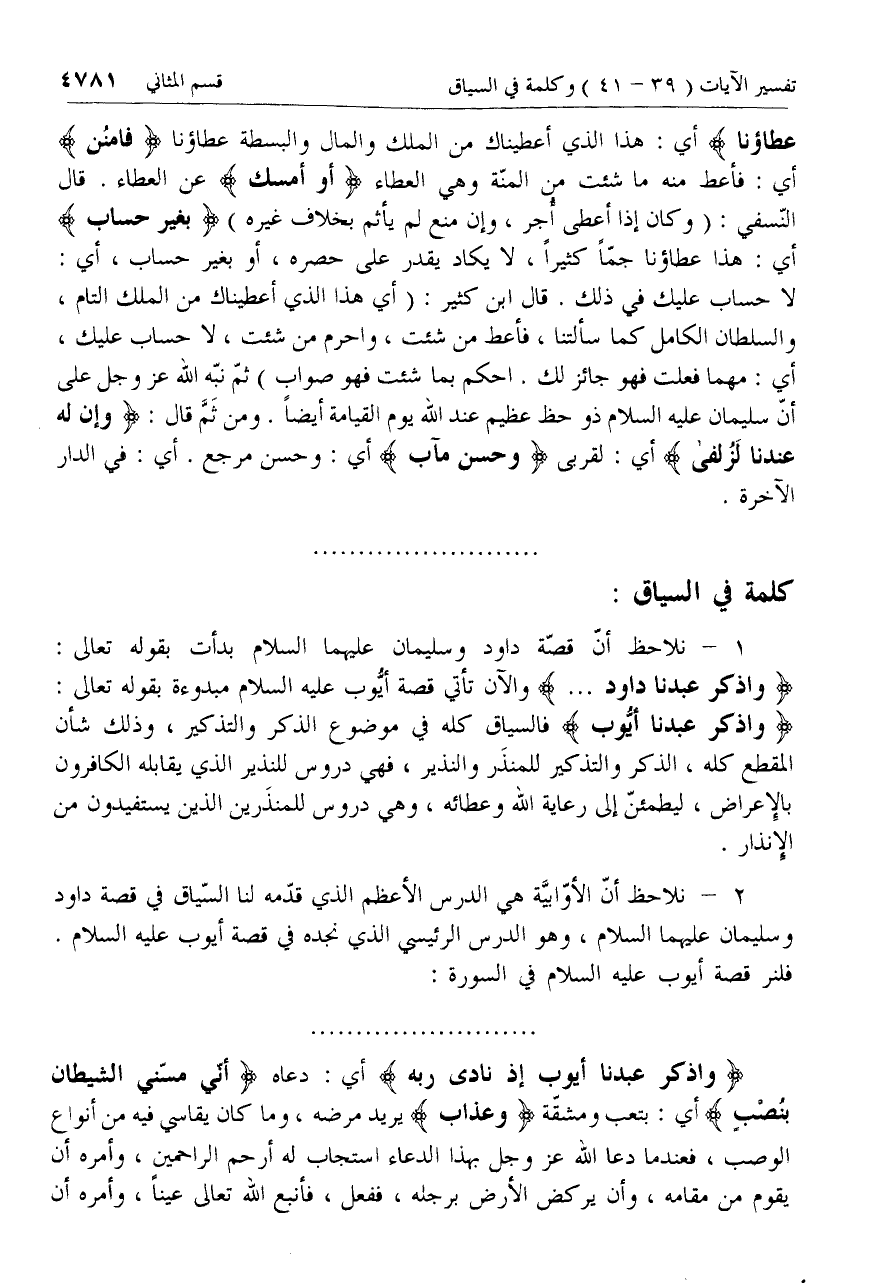 تفسير الآيات ( ٣٩ - ٤١ ) وكلمة في السياق قسم المثاني ٤٧٨١
عطاؤنا ﴾ أي : هذا الذي أعطيناك من الملك والمال والبسطة عطاؤنا ﴿ فامنُن ﴾
أي : فأعط منه ما شئت من المنّة وهي العطاء ﴿ أو أمسك ﴾ عن العطاء . قال
النّسفي : ( وكان إذا أعطى أُجر ، وإن منع لم يأثم بخلاف غيره ) ﴿ بغير حساب ﴾
أي : هذا عطاؤنا جمّاً كثيراً ، لا يكاد يقدر على حصره ، أو بغير حساب ، أي :
لا حساب عليك في ذلك . قال ابن كثير : ( أي هذا الذي أعطيناك من الملك التام ،
والسلطان الكامل كما سألتنا ، فأعط من شئت ، واحرم من شئت ، لا حساب عليك ،
أي : مهما فعلت فهو جائز لك . احكم بما شئت فهو صواب ) ثمّ نبّه الله عز وجل على
أنّ سليمان عليه السلام ذو حظ عظيم عند الله يوم القيامة أيضاً . ومن ثَمَّ قال : ﴿ وإن له
عندنا لَزُلفىٰ ﴾ أي : لقربى ﴿ وحسن مآب ﴾ أي : وحسن مرجع . أي : في الدار
الآخرة .
.........................
كلمة في السياق :
١ - نلاحظ أنّ قصّة داود وسليمان عليهما السلام بدأت بقوله تعالى :
﴿ واذكر عبدنا داود ... ﴾ والآن تأتي قصة أيُّوب عليه السلام مبدوءة بقوله تعالى :
﴿ واذكر عبدنا أيُّوب ﴾ فالسياق كله في موضوع الذكر والتذكير ، وذلك شأن
المقطع كله ، الذكر والتذكير للمنذَر والنذير ، فهي دروس للنذير الذي يقابله الكافرون
بالإِعراض ، ليطمئنّ إلى رعاية الله وعطائه ، وهي دروس للمنذَرين الذين يستفيدون من
الإِنذار .
٢ - نلاحظ أنّ الأوّابيَّة هي الدرس الأعظم الذي قدّمه لنا السّياق في قصة داود
وسليمان عليهما السلام ، وهو الدرس الرئيسي الذي نجده في قصة أيوب عليه السلام .
فلنر قصة أيوب عليه السلام في السورة :
.........................
﴿ واذكر عبدنا أيوب إذ نادى ربه ﴾ أي : دعاه ﴿ أنّي مسّني الشيطان
بنُصْبٍ ﴾ أي : بتعب ومشقّة ﴿ وعذاب ﴾ يريد مرضه ، وما كان يقاسي فيه من أنواع
الوصب ، فعندما دعا الله عز وجل بهذا الدعاء استجاب له أرحم الراحمين ، وأمره أن
يقوم من مقامه ، وأن يركض الأرض برجله ، ففعل ، فأنبع الله تعالى عيناً ، وأمره أن